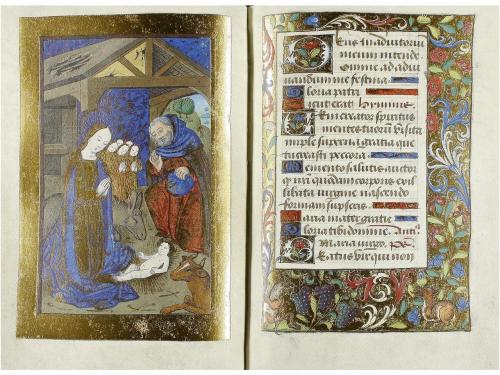 Deus in adiutoriu
meum intende
Domine ad adiu
uandum me festina
Gloria patri
Sicut erat
Veni creator spiritus
mentes tuorum visita
imple superna gratia que
tu creasti pectora
Memento salutis auctor
quondam corporis ex il
libata virgine nascendo
formam
Maria mater gratie
Gloria tibi domine. Anti
Maria virgo
Beatus vir qui non